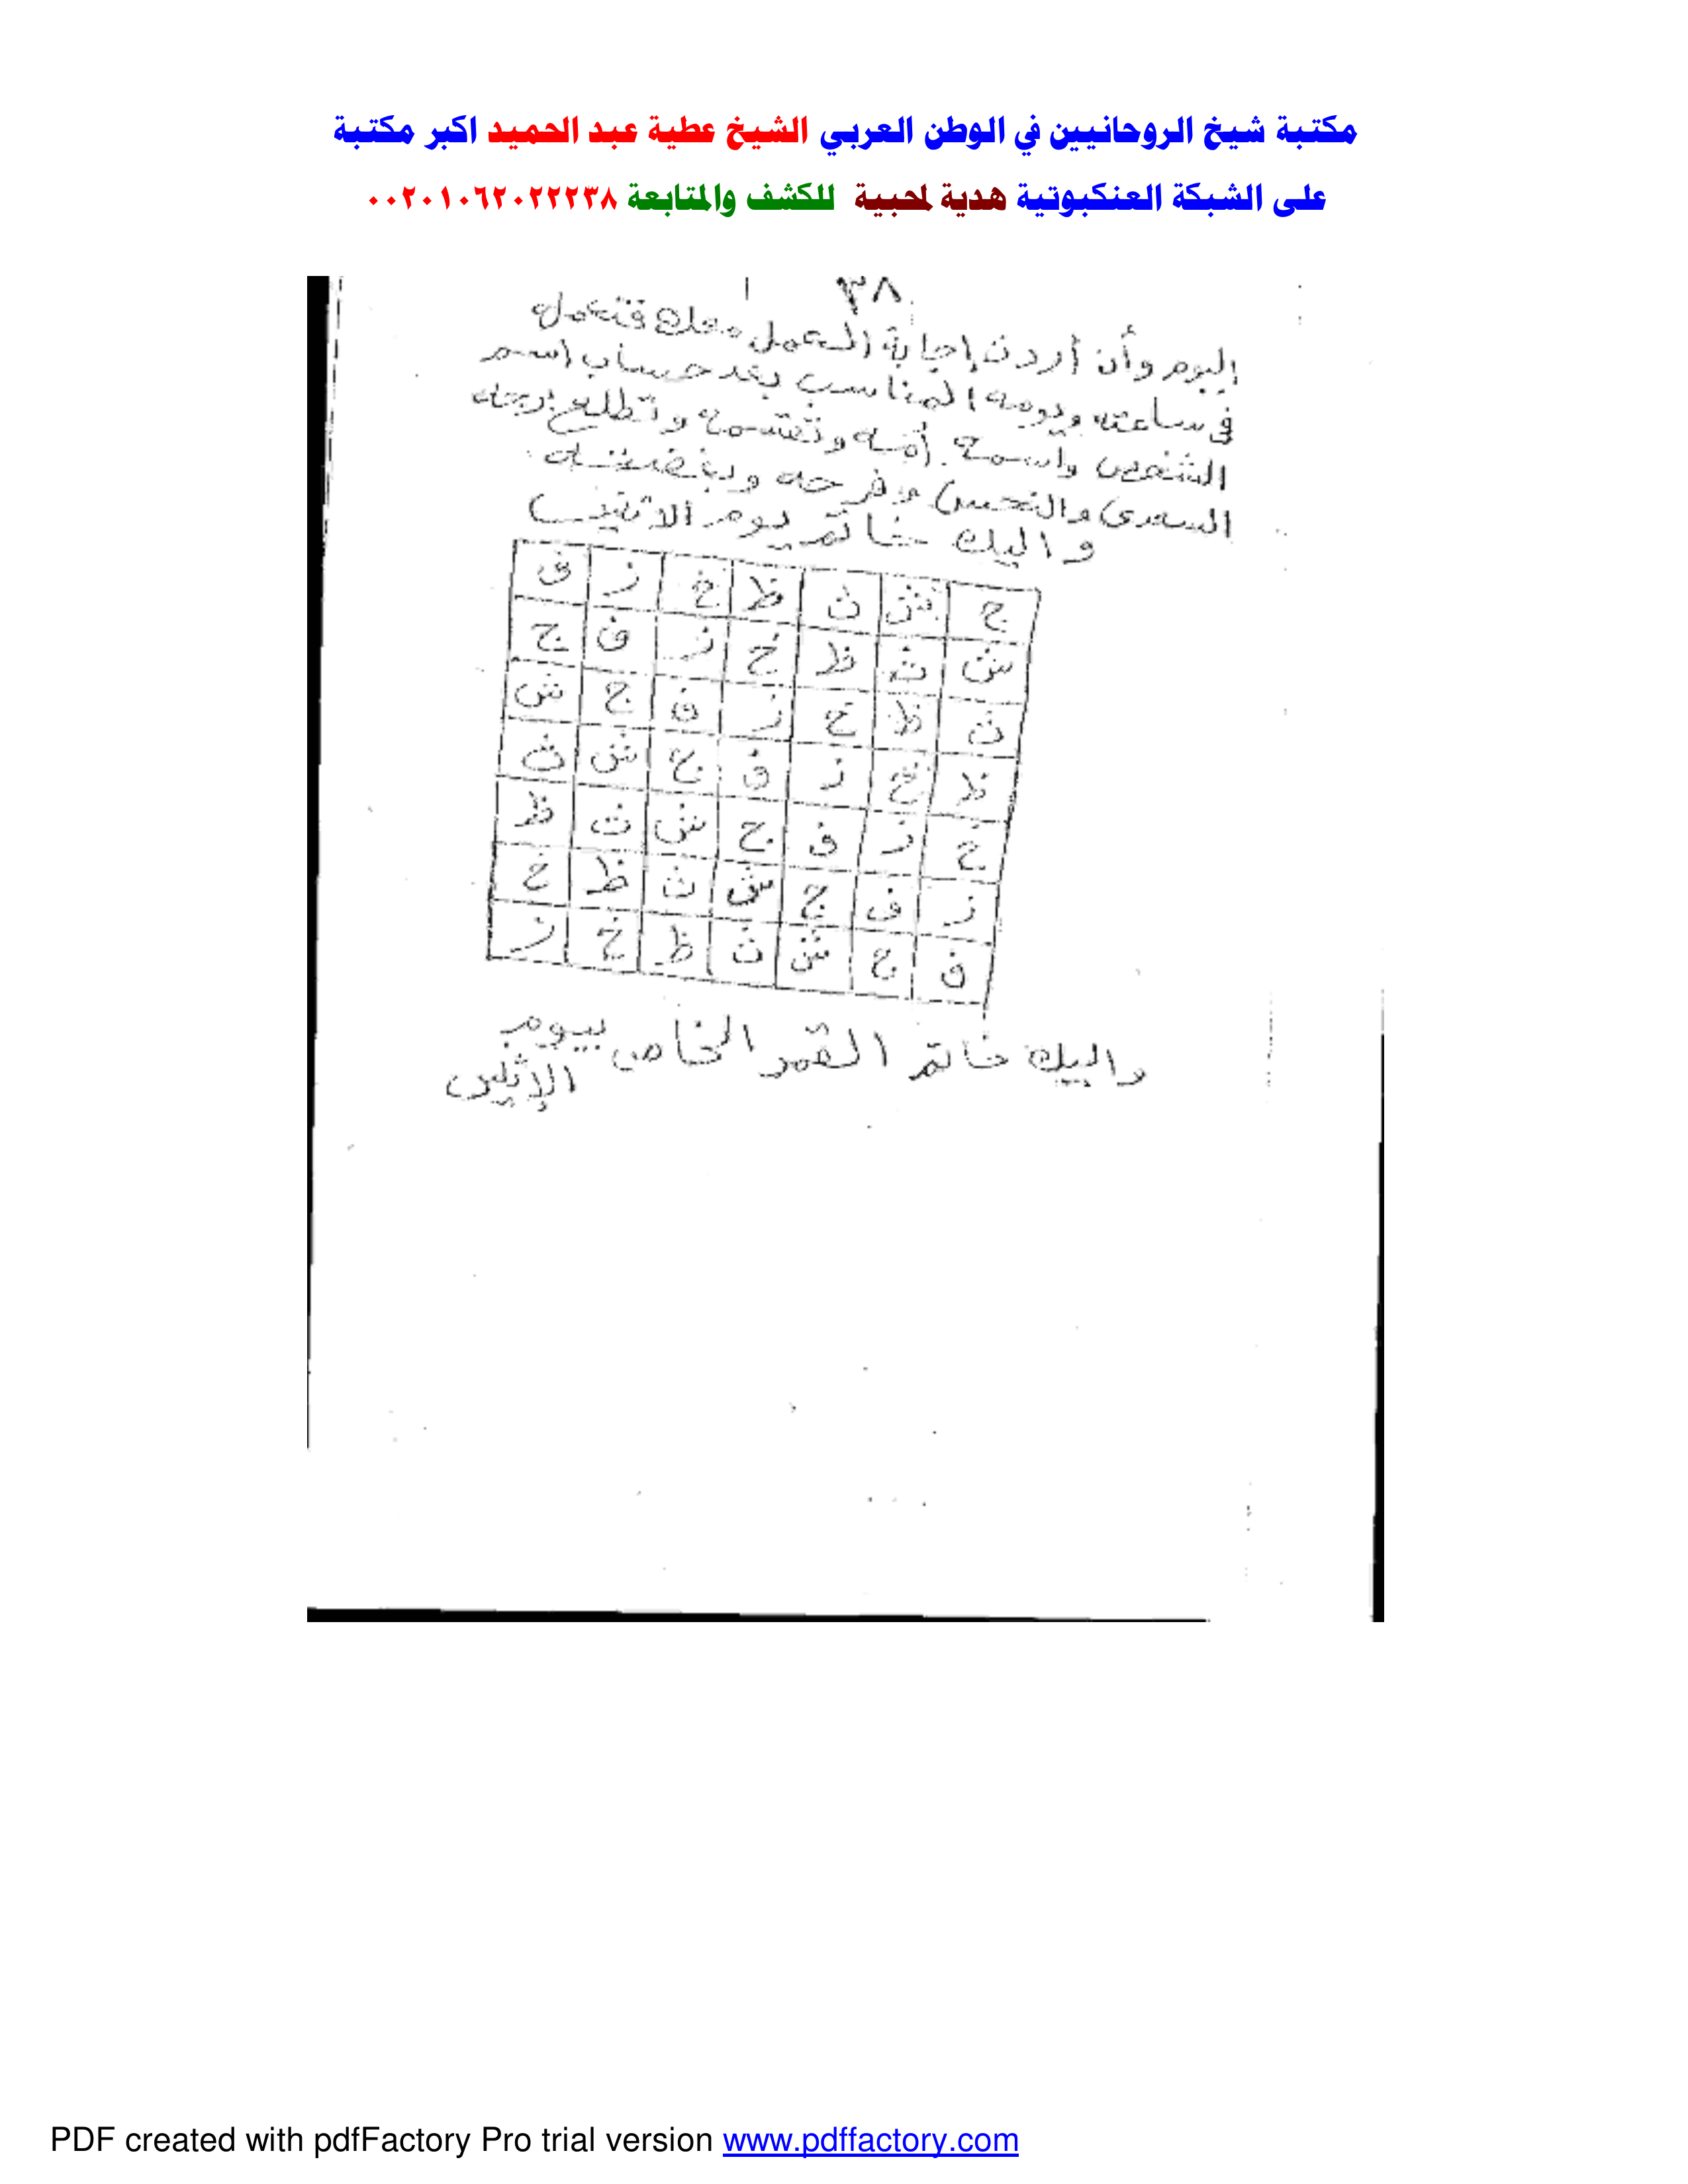 مكتبة شيخ الروحانيين في الوطن العربي الشيخ عطية عبد الحميد اكبر مكتبة
على الشبكة العنكبوتية هدية لمحبية للكشف والمتابعة ٠٠٢٠١٠٦٢٠٢٢٢٣٨
٣٨
اليوم وأن أردت إجابة العمل معك فتعمله
في ساعته ويومه المناسب بعد حساب اسم
الشخص واسمه أمه وتقسمه وتطلع برجه
السعدى والنحس وفرحه وبغضه
واليك خاتم يوم الاثنين
ج ش ث ظ خ ز ف
ش ث ظ خ ز ف ج
ث ظ خ ز ف ج ش
ظ خ ز ف ج ش ث
خ ز ف ج ش ث ظ
ز ف ج ش ث ظ خ
ف ج ش ث ظ خ ز
واليك خاتم القمر الخاص بيوم
الإثنين
PDF created with pdfFactory Pro trial version www.pdffactory.com